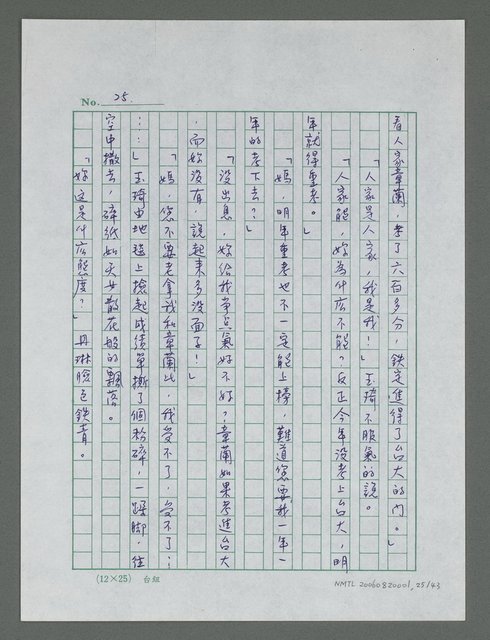 No. 25.
看人家章蘭,考了六百多分,鉄定進得了台大的门。」
「人家是人家,我是我!」玉琦不服氣的說。
「人家能,妳為什広不能?反正今年没考上台大,明
年就得重考。」
「媽,明年重考也不一定能上榜,難道您要我一年一
年的考下去?」
「没出息,妳給我爭点氣好不好?章蘭如果考進台大
,而妳没有,說起来多没面子!」
「媽,您不要老拿我和章蘭比,我受不了,受不了⋮
⋮」玉琦由地毯上撿起成績單撕了個粉碎,一跺脚,往
空中撒去,碎紙如天女散花般的飄落。
「妳这是什広態度?」丹琳臉色鉄青。
(12×25) 台組
NMTL 20060820001, 25/43